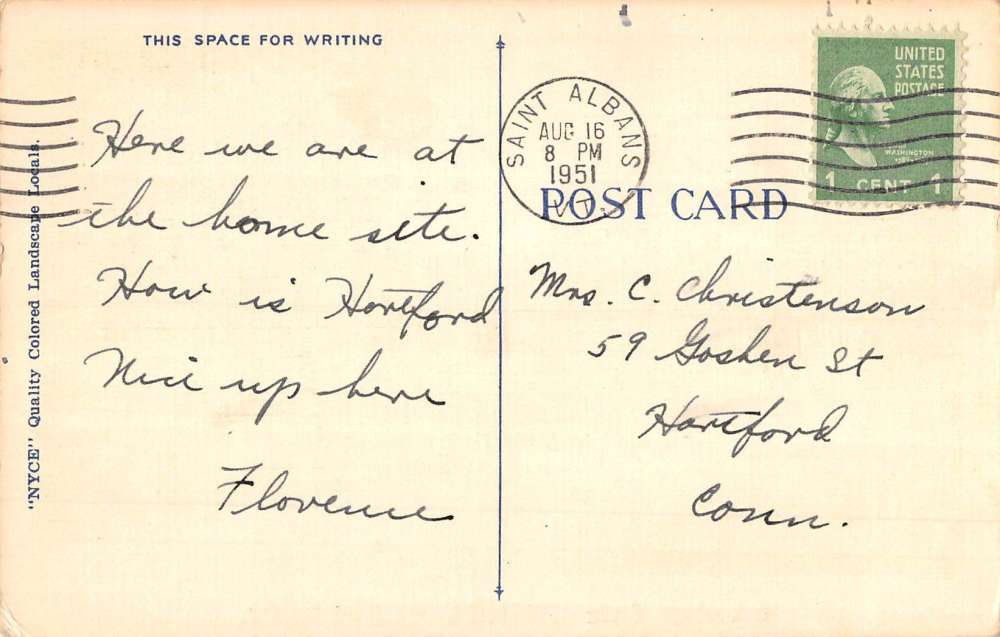 THIS SPACE FOR WRITING
Here we are at
the home site.
How is Hartford
Nice up here
Florence
"NYCE" Quality Colored Landscape Locals.
SAINT ALBANS
AUG 16
8 PM
1951
VT.
UNITED
STATES
POSTAGE
WASHINGTON
1 CENT 1
POST CARD
Mrs. C. Christenson
59 Goshen St
Hartford
Conn.